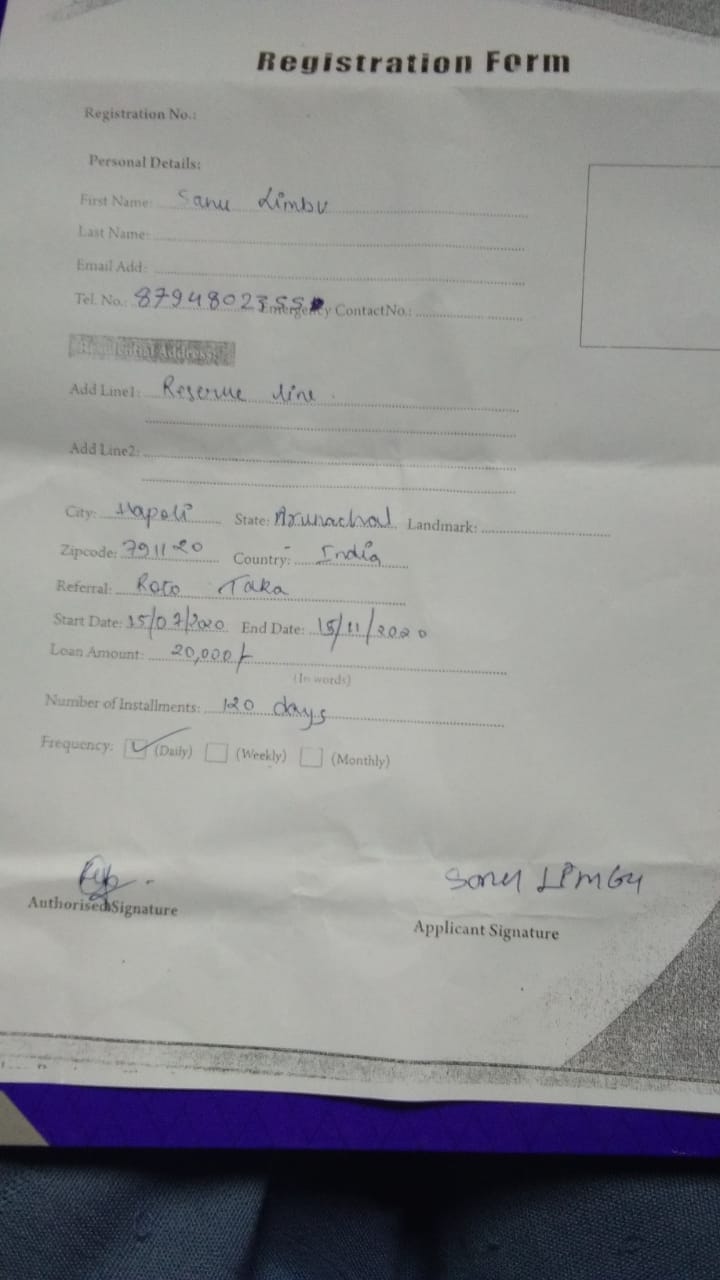 Registration Form
Registration No.:
Personal Details:
First Name: Sanu Limbu
Last Name:
Email Add:
Tel. No.: Emergency Contact No.:
Residential Address:
Add Line1: Reserve line
Add Line2:
City: Hapoli State: Arunachal Landmark:
Zipcode: 791120 Country: India
Referral: Roto Taka
Start Date: 15/07/2020 End Date: 15/11/2020
Loan Amount: 20,000/-
(In words)
Number of Installments: 120 days
Frequency: (Daily) (Weekly) (Monthly)
Authorised Signature
Sonu LIMBU
Applicant Signature